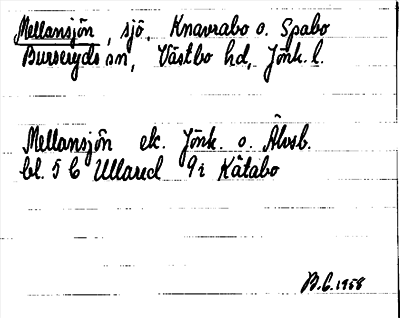 Mellansjön, sjö, Knavrabo o. Spabo
Burseryds sn, Västbo hd, Jönk. l.
Mellansjön ek. Jönk. o. Älvsb.
bl. 5 C Ullared 9i Kåtabo
B.C. 1958